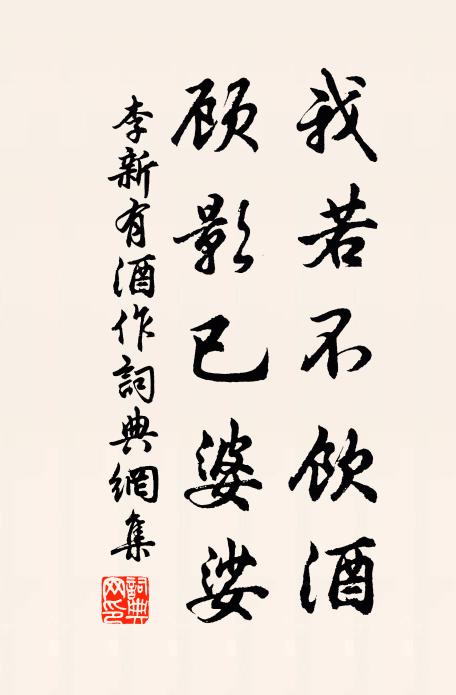 我若不飲酒
顾影已婆娑
李新有酒作詞典網集
詞典網印